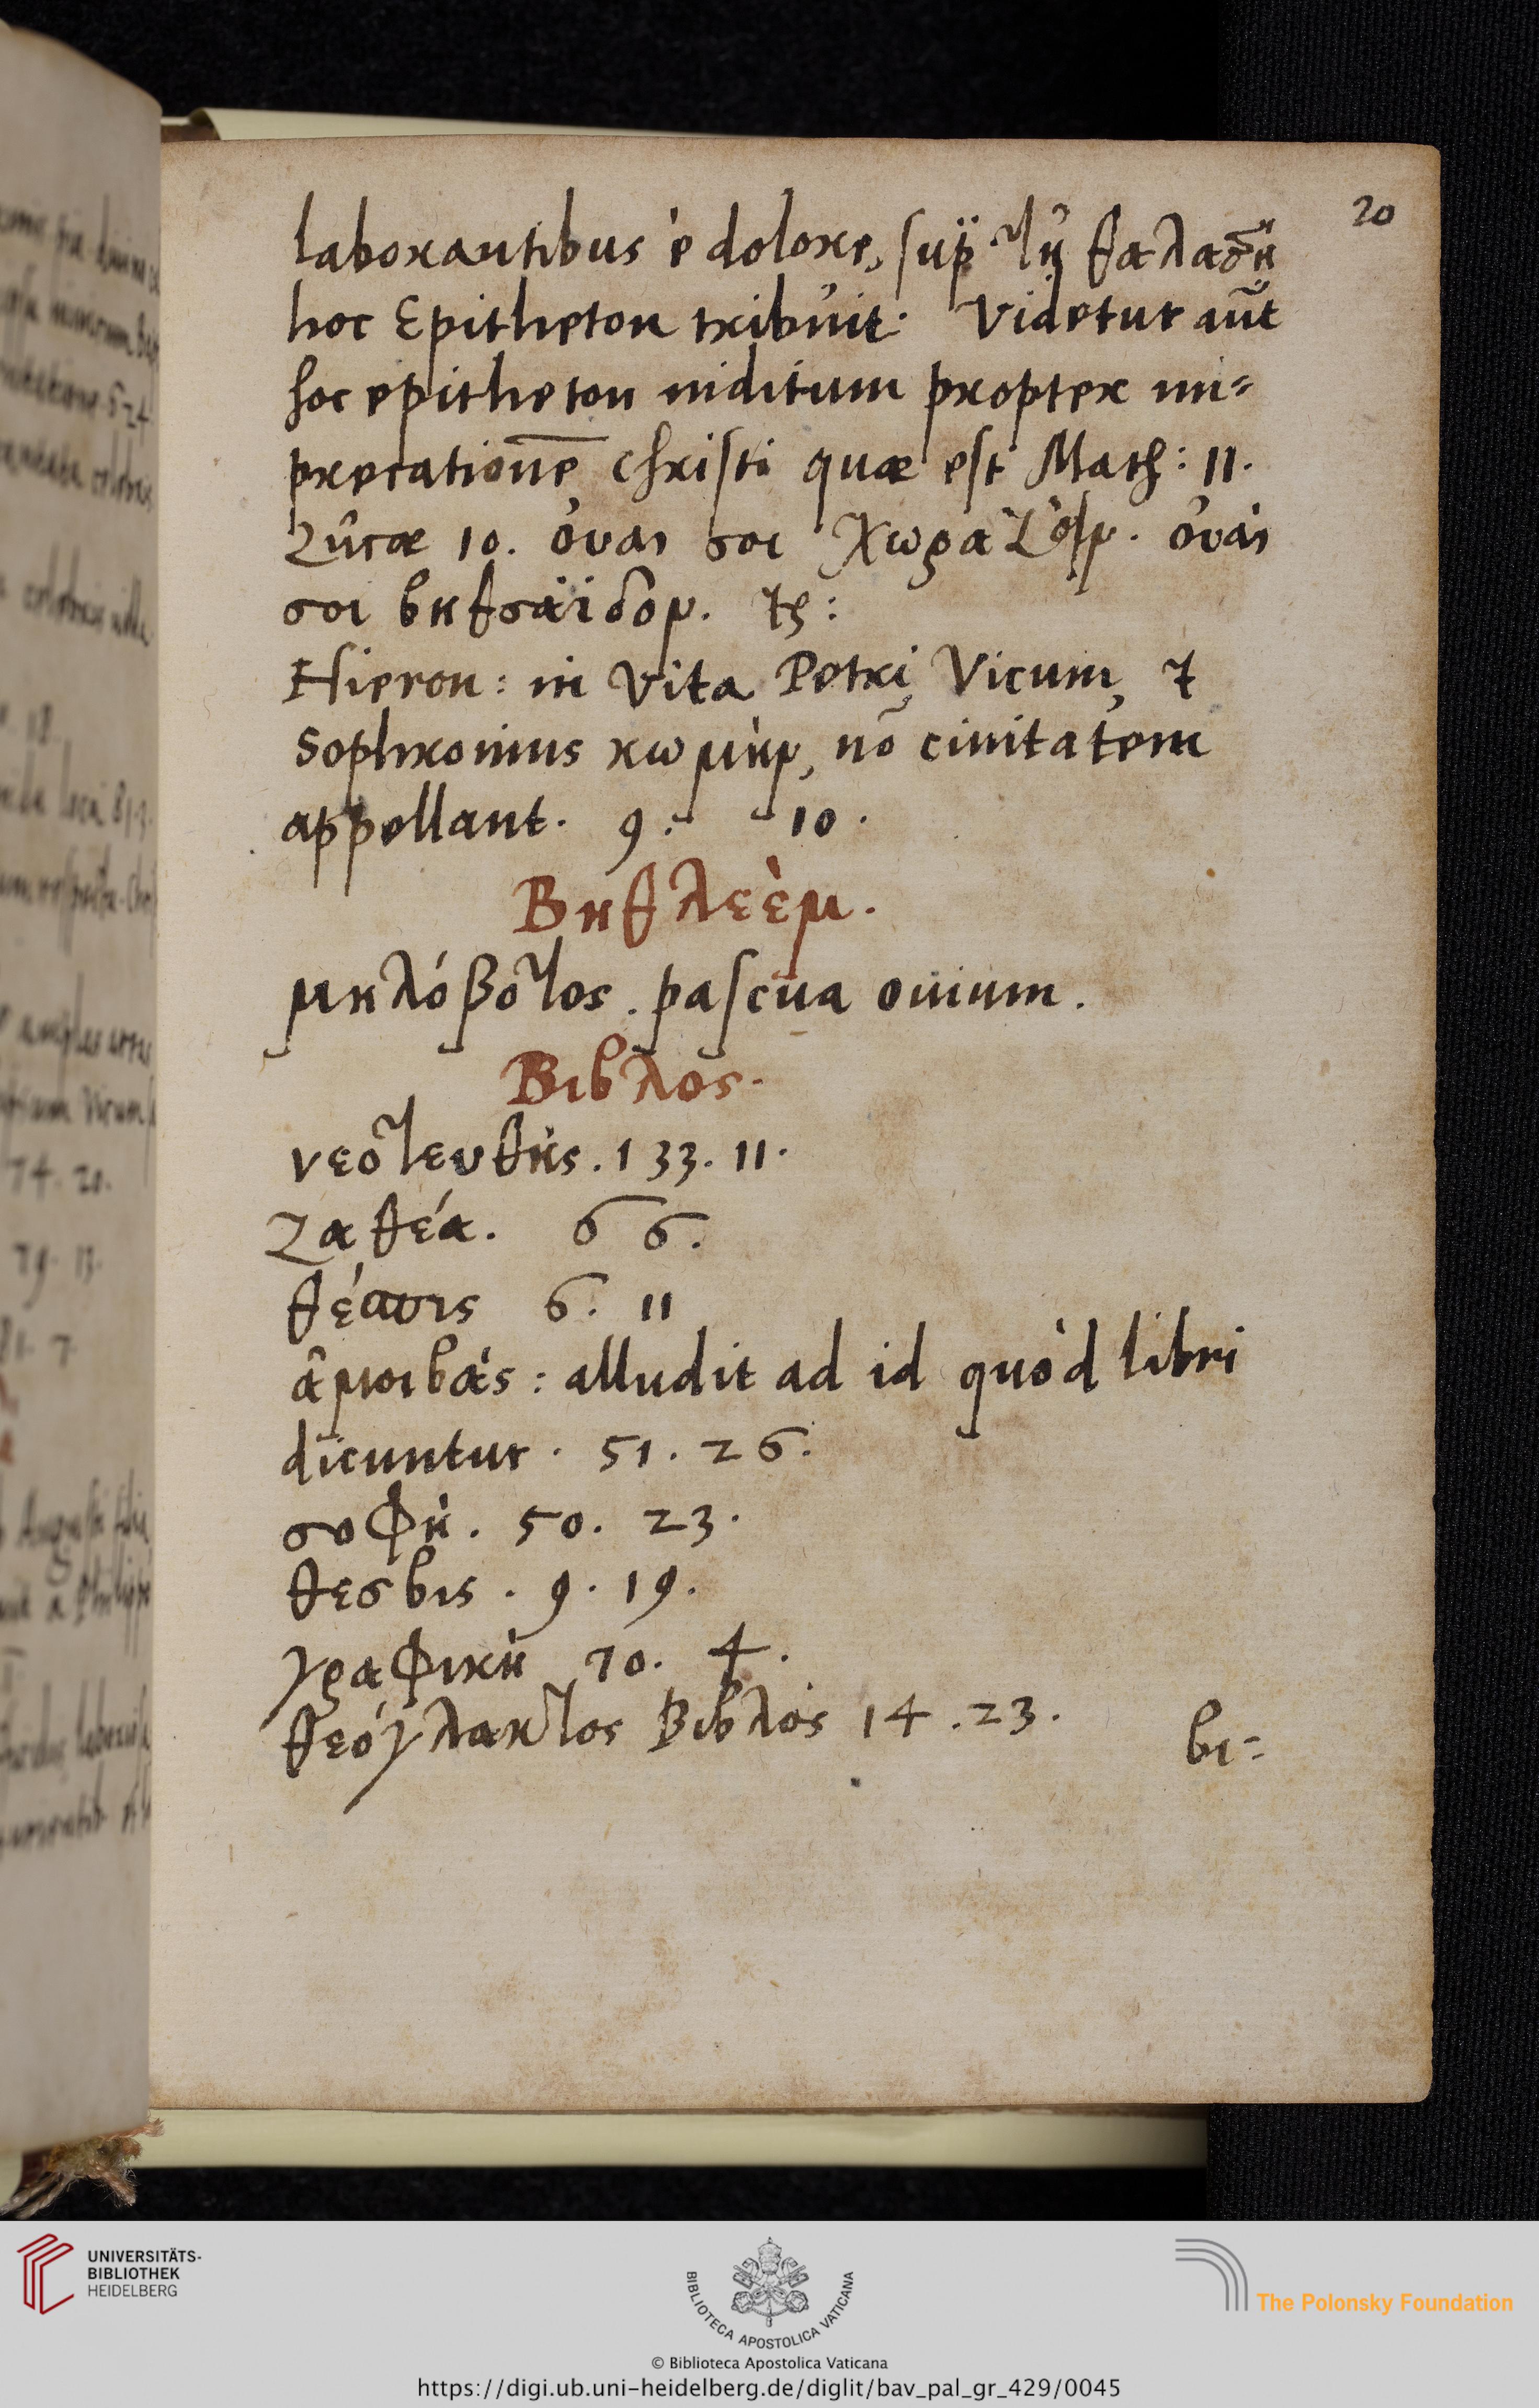 20
laborantibus è dolore, sup̈ τῇ θαλασῇ
hoc Epitheton tribuit. Videtur aut̃
hoc epitheton inditum propter im=
precatione̅ Christi quæ est Math: 11.
Lucæ 10. ὀυαι σοι Χωραζὶμ. ὀυάι
σοι βηθσαϊδαμ. &c:
Hieron: in Vita Petri Vicum, &
Sophronius κωμὴν, nõ ciuitatem
appellant. 9. 10.
Βηθλεὲμ.
μηλόβοτος. pascua ouium.
Βιβλος.
νεοτευθὴς. 133. 11.
ζαθέα. 66.
θέσπις 6. 11
ἀμοιβάς: alludit ad id quòd libri
dicuntur. 51. 26.
σοφὴ. 50. 23.
θεσβις. 9. 19.
γραφικὴ 70. 4.
θεόγλακτος Βιβλος 14. 23.
βι=
UNIVERSITÄTS-
BIBLIOTHEK
HEIDELBERG
BIBLIOTECA APOSTOLICA VATICANA
The Polonsky Foundation
© Biblioteca Apostolica Vaticana
https://digi.ub.uni-heidelberg.de/diglit/bav_pal_gr_429/0045